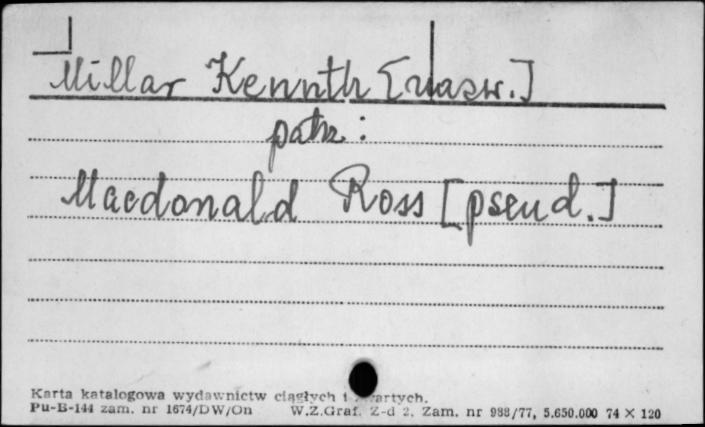 Millar Kennth [nazw.]
patrz:
Macdonald Ross [pseud.]
Karta katalogowa wydawnictw ciągłych i zwartych.
Pu-B-144 zam. nr 1674/DW/On W.Z.Graf. Z-d 2. Zam. nr 988/77, 5.650.000 74 X 120